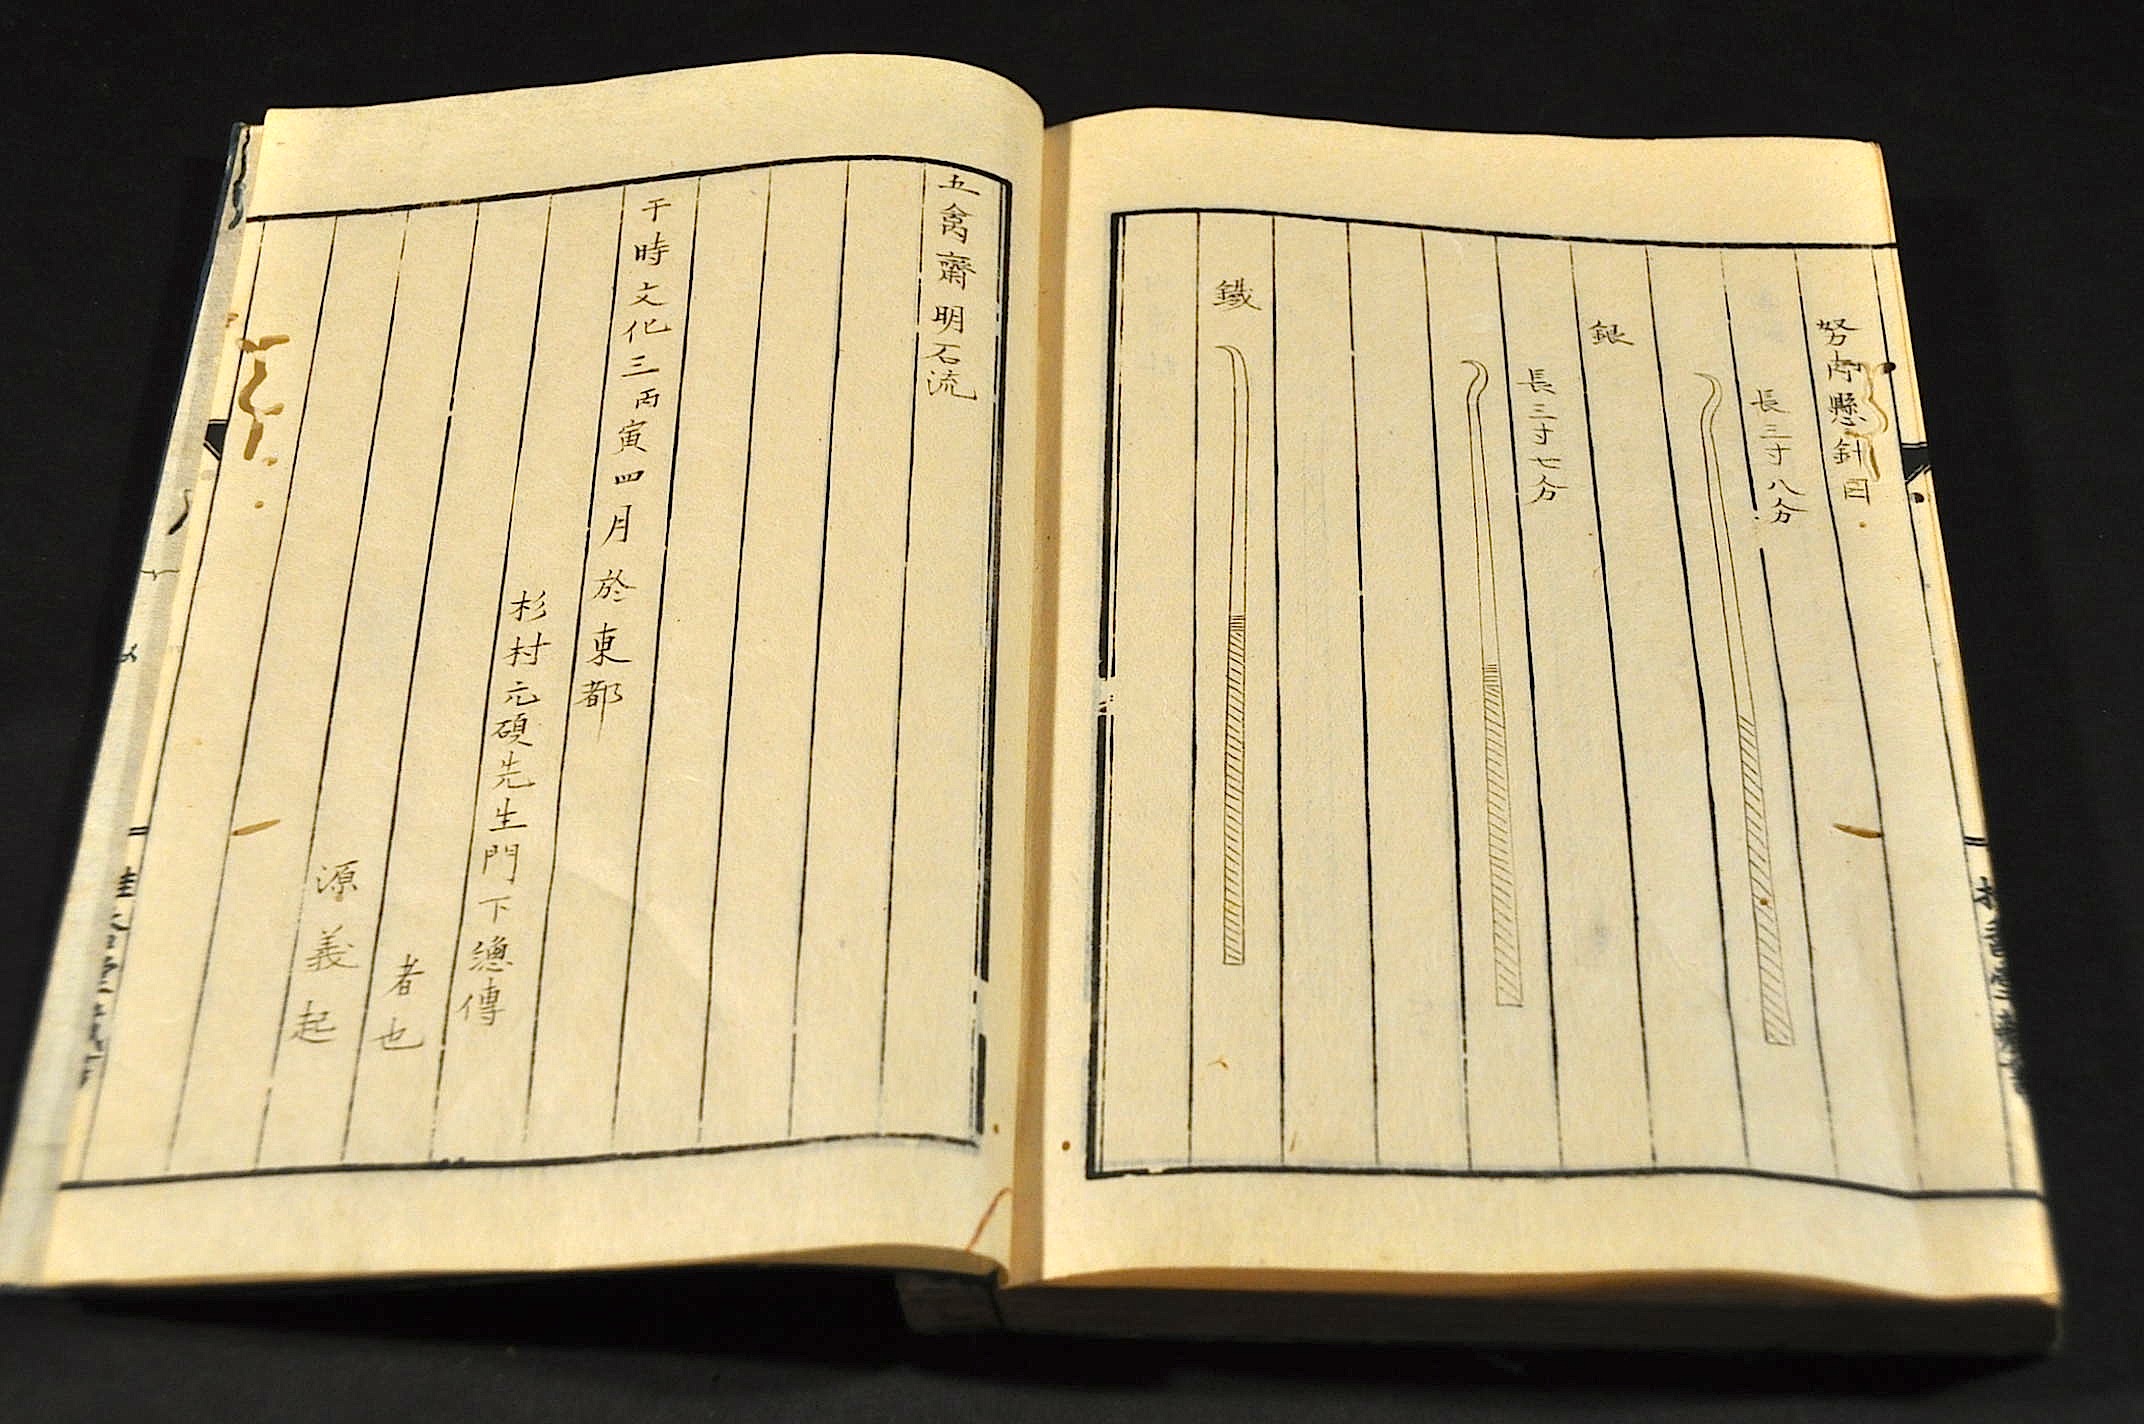 努肉懸針図
長三寸八分
銀
長三寸七分
鐵
五禽齋明石流
于時文化三丙寅四月於東都
杉村元碩先生門下總傳
者也
源義起